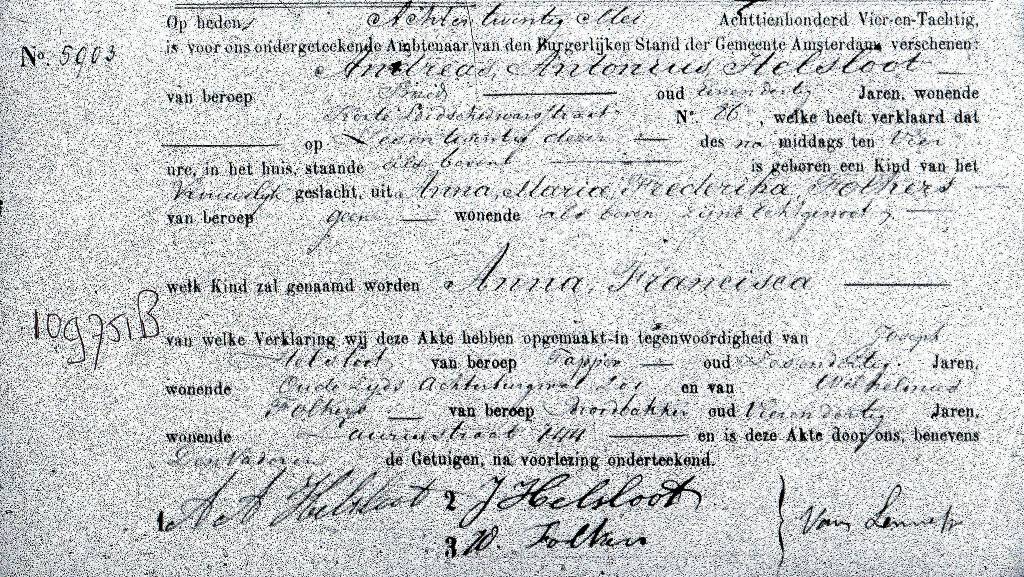 Op heden, Achten twintig Mei Achttienhonderd Vier-en-Tachtig,
No. 5903 is voor ons ondergeteekende Ambtenaar van den Burgerlijken Stand der Gemeente Amsterdam, verschenen:
Andreas, Antonius, Helsloot
van beroep oud Jaren, wonende
No. 86, welke heeft verklaard dat
op Zeven twintig dezer des na middags ten Vier
ure, in het huis, staande als boven is geboren een Kind van het
Vrouwelijk geslacht, uit Anna, Maria, Frederika, Folkers
van beroep geen wonende als boven zijne Echtgenoot
welk Kind zal genaamd worden Anna, Francisca
109751B
van welke Verklaring wij deze Akte hebben opgemaakt in tegenwoordigheid van Joseph
Helsloot van beroep Tapper oud Jaren,
wonende Oude Zijds Achterburgwal en van Wilhelmus
Folkers van beroep Broodbakker oud Vier en dertig Jaren,
wonende Laurierstraat 144 en is deze Akte door ons, benevens
Den Vader en de Getuigen, na voorlezing onderteekend.
1 A A Helsloot 2 J Helsloot
3 W. Folkers Van Lennep